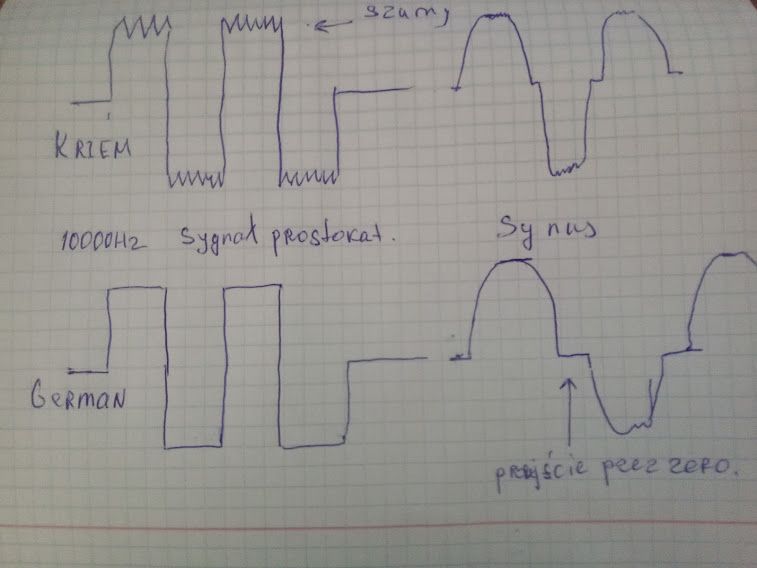 szumy
KRZEM
10000Hz Sygnał prostokąt.
Synus
GERMAN
przejście przez zero.